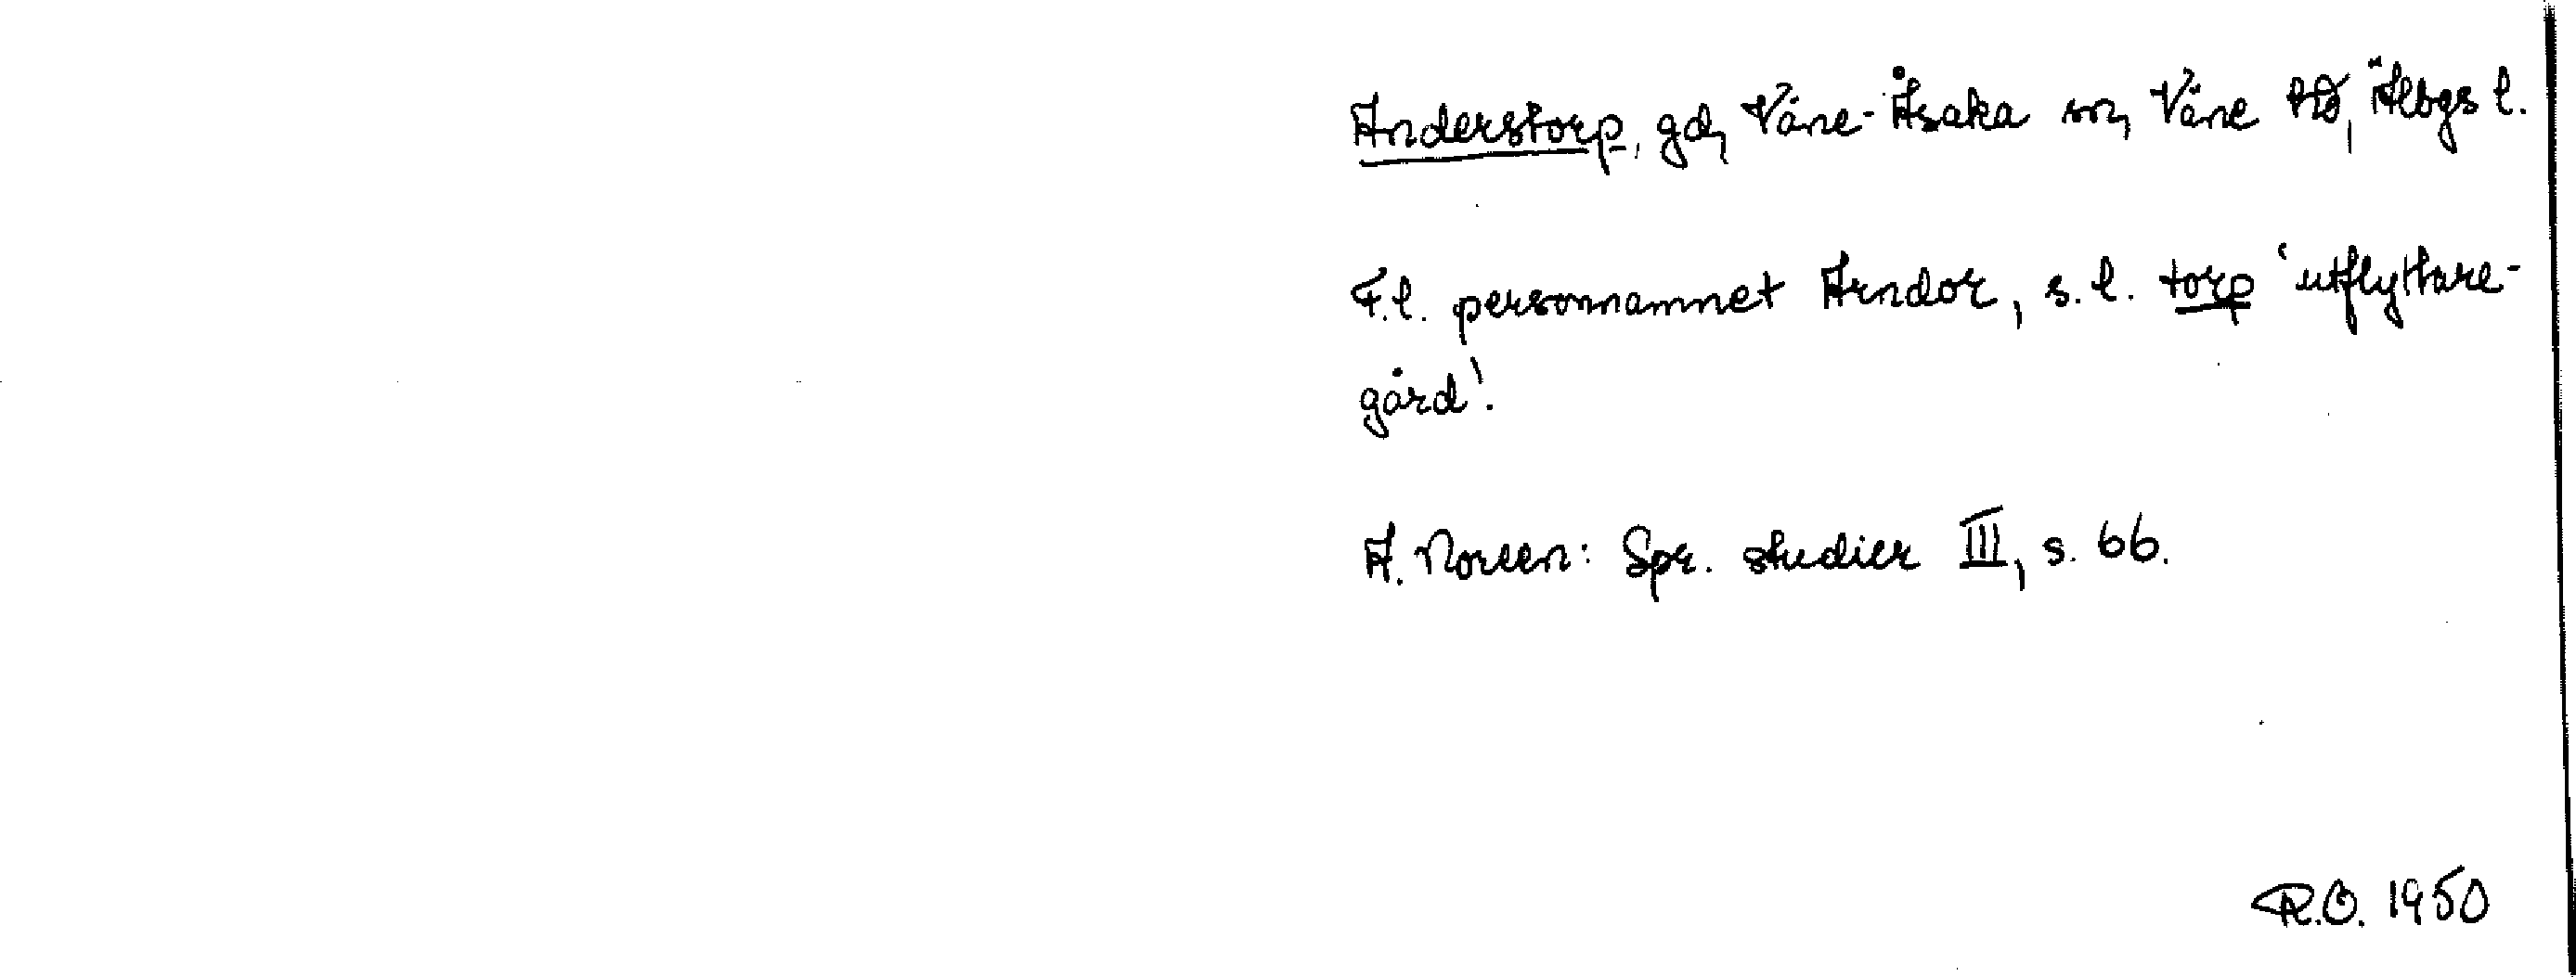 Anderstorp, gd, Väne-Åsaka sn, Väne hd, Älvbgs l.
F.l. personnamnet Arndor, s.l. torp 'utflyttare-
gård'.
A. Noreen: Spr. studier III, s. 66.
R.O. 1950